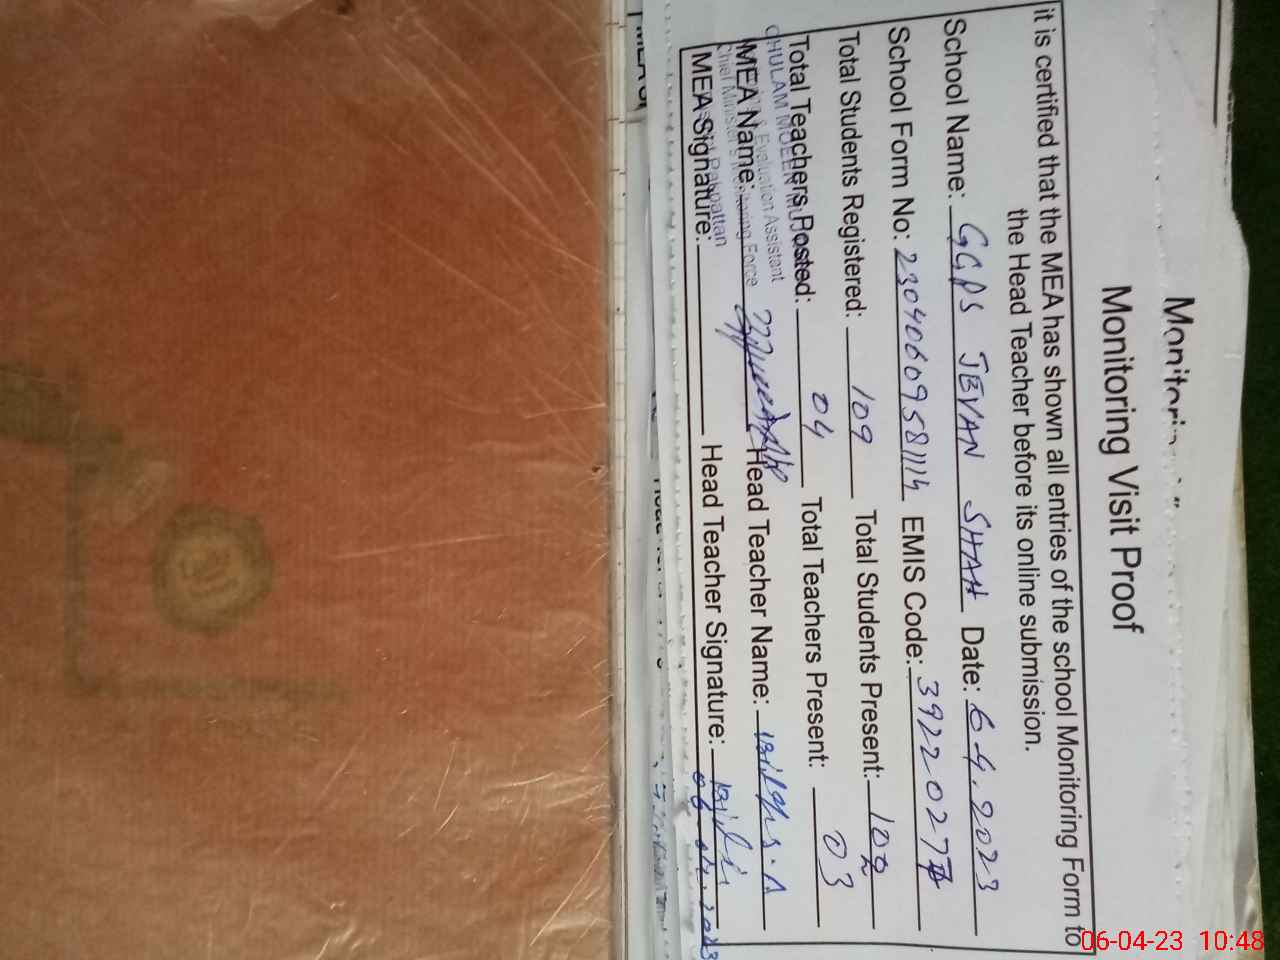 Monitoring Visit Proof
it is certified that the MEA has shown all entries of the school Monitoring Form to
the Head Teacher before its online submission.
School Name: GGPS JEVAN SHAH Date: 6-4.2023
School Form No: 23040609581114 EMIS Code: 3922027
Total Students Registered: 109 Total Students Present: 102
Total Teachers Posted: 04 Total Teachers Present: 03
GHULAM MUEEN
Evaluation Assistant
MEA Name: Head Teacher Name: Bilqis. A
Chief Minister's Monitoring Force
MEA Signature: Head Teacher Signature:
Pakpattan
06-04-23 10:48